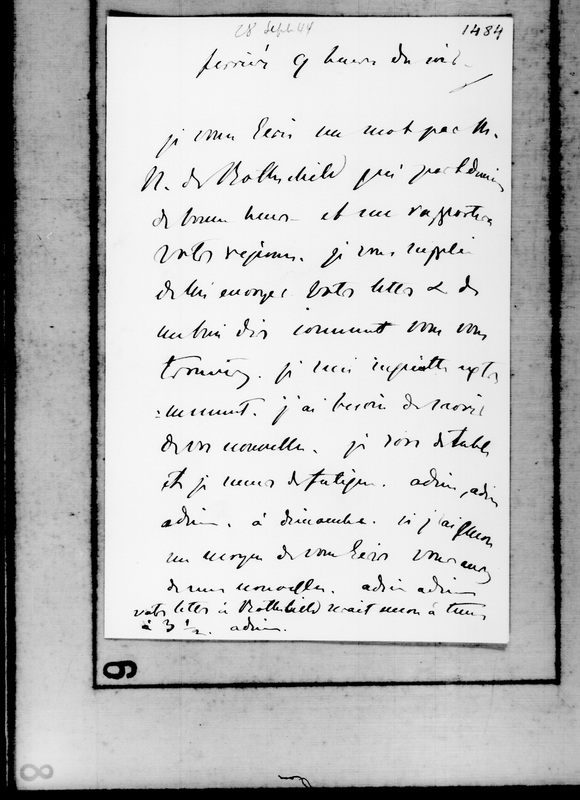 28 Sept 44
1484
ferrières 9 heures du soir
je vous écris un mot par M.
N. de Rothschild qui part demain
de bonne heure et me rapportera
votre réponse. je vous supplie
de lui envoyer votre lettre & de
me bien dire comment vous vous
trouvez. je suis inquiette
j'ai besoin de savoir
de vos nouvelles. je sors de table
et je meurs de fatigue. adieu, adieu
adieu. à dimanche. si j'ai
un moyen de vous écrire vous aurez
de mes nouvelles. adieu adieu
votre lettre à Rothschild serait
à 3 1/2. adieu.
6
8